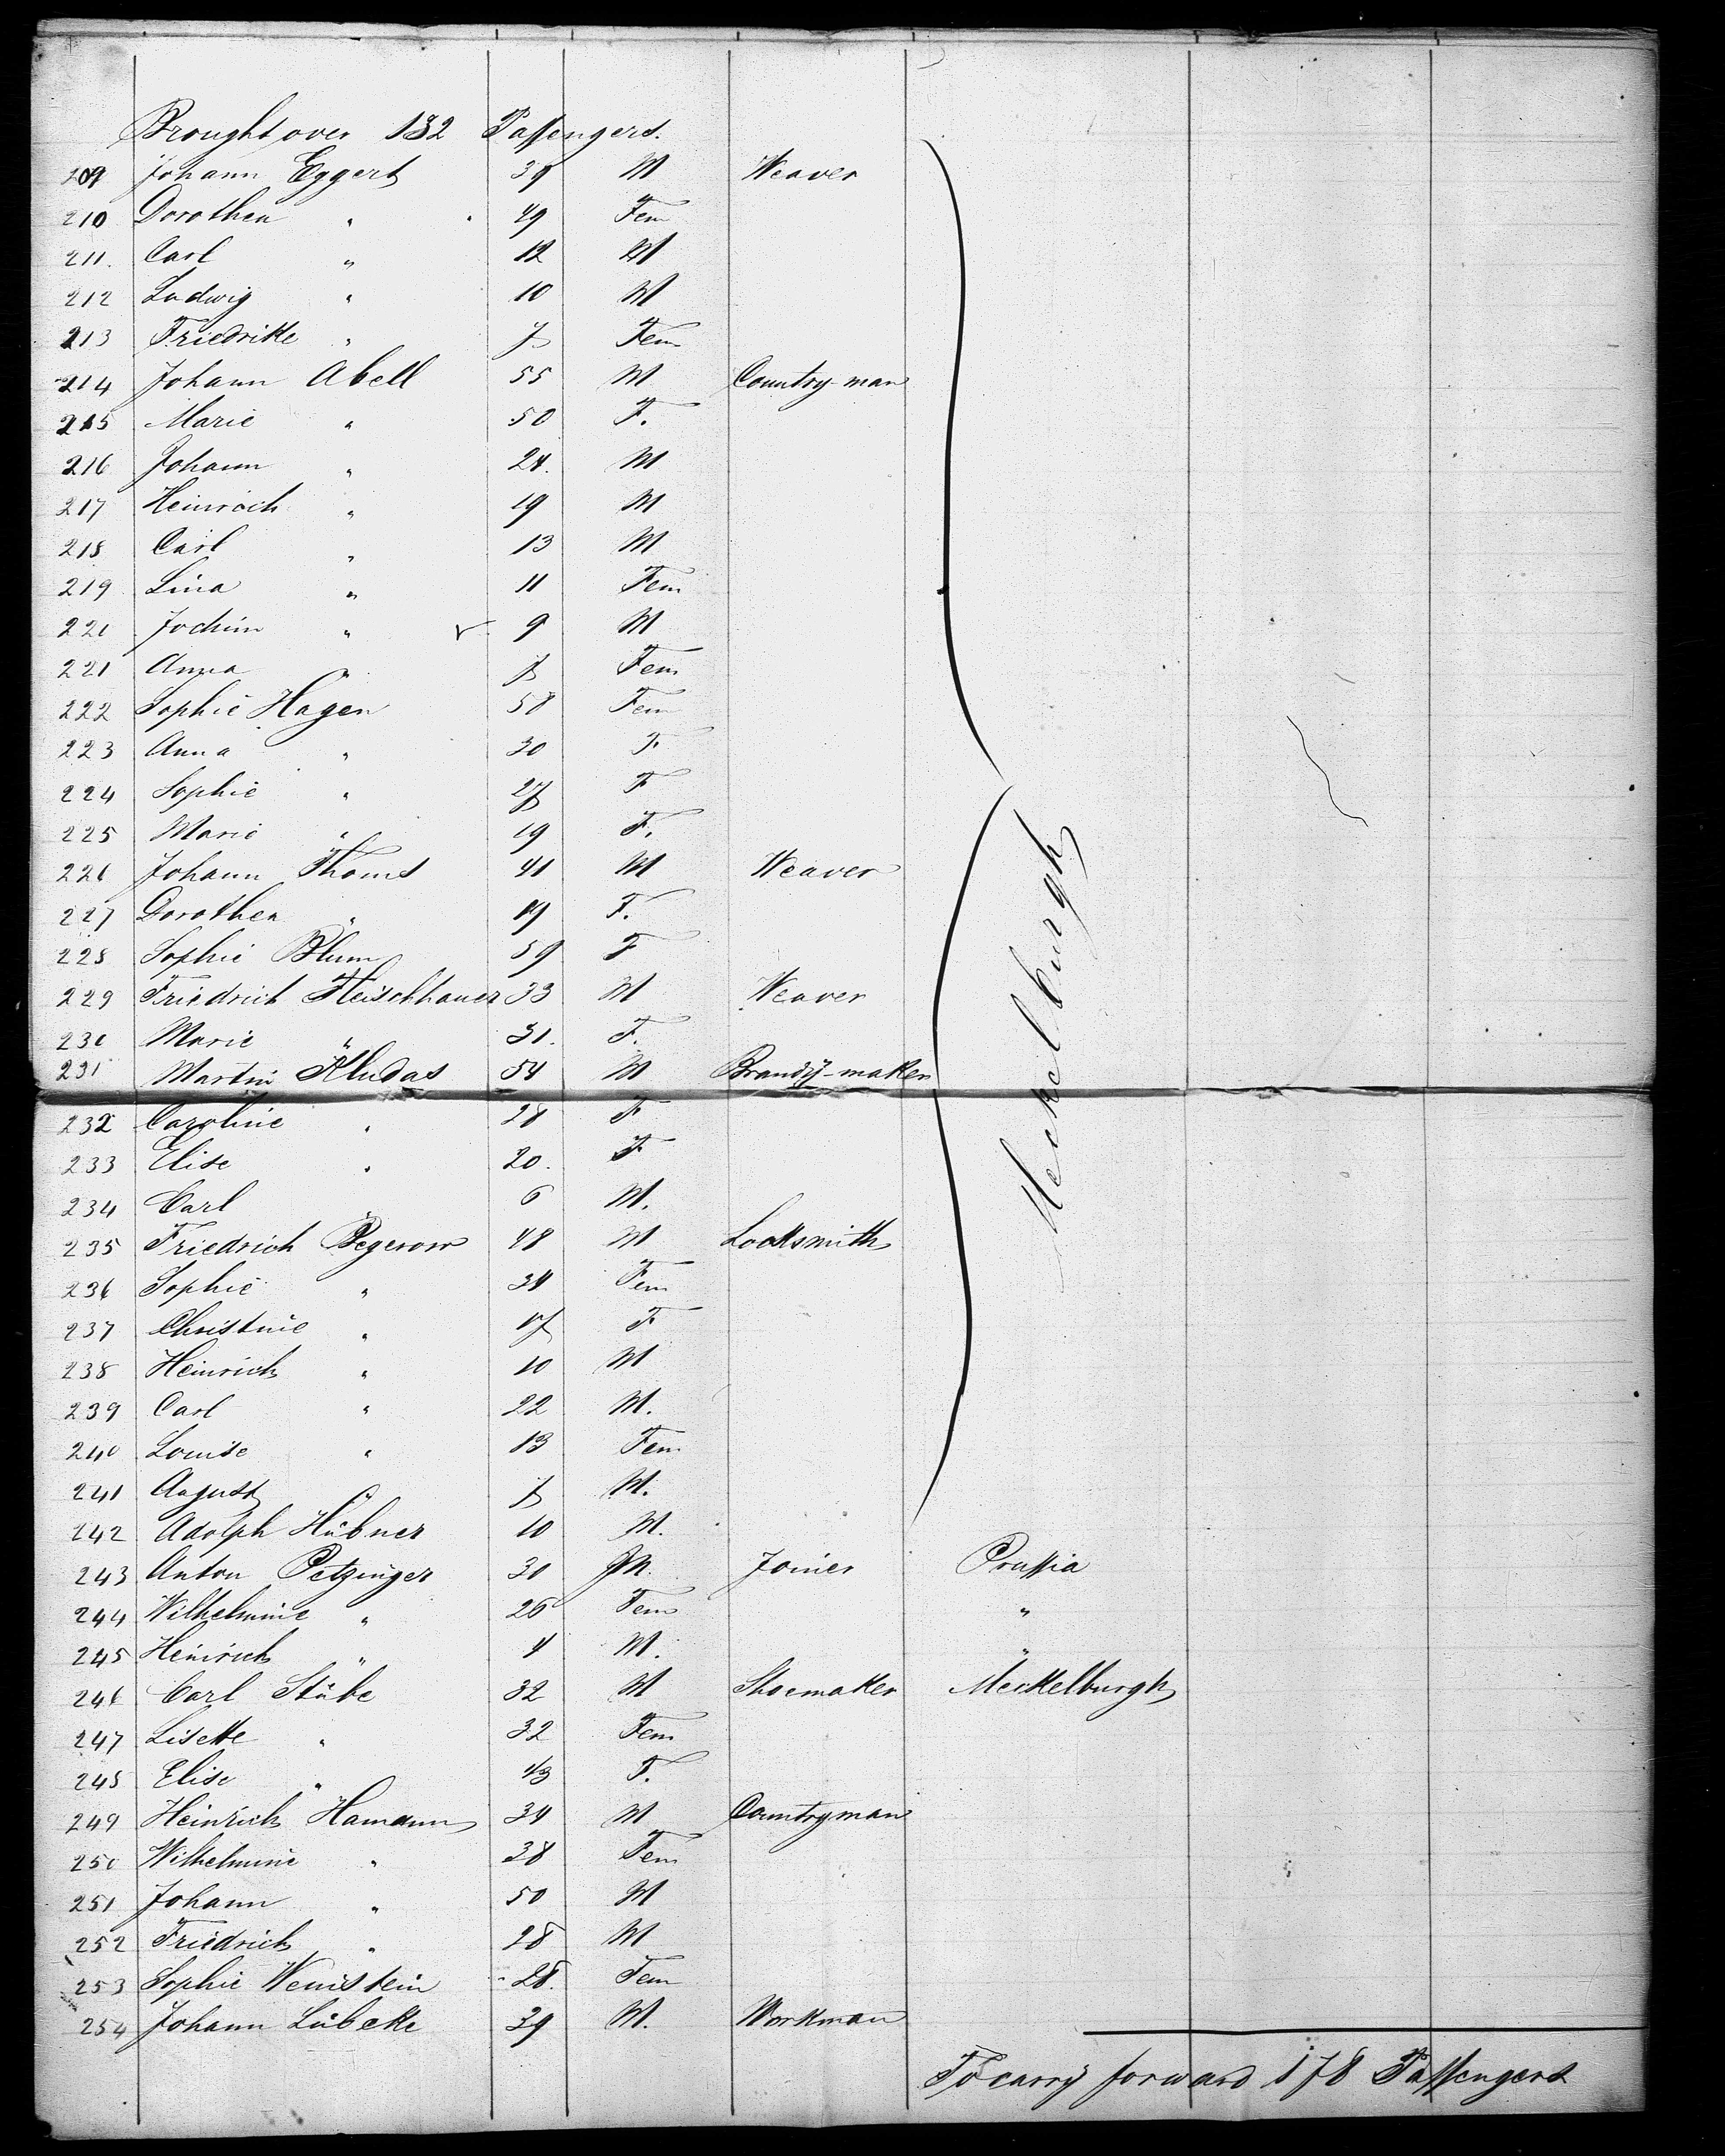 Brought over 132 Passengers.
209 Johann Eggert 39 M Weaver
210 Dorothea " 49 Fem
211. Carl " 12 M
212 Ludwig " 10 M
213 Friedrike " 7 Fem
214 Johann Abell 55 M Country-man
215 Marie " 50 F.
216 Johann " 24. M
217 Heinrich " 19 M
218 Carl " 13 M
219 Lina " 11 Fem
220 Jochim " 9 M
221 Anna " 7 Fem
222 Sophie Hagen 58 Fem
223 Anna " 30 F
224 Sophie " 27 F
225 Marie " 19 F.
226 Johann Thoms 41 M Weaver
227 Dorothea " 19 F.
228 Sophie Blum 59 F
229 Friedrich Fleischhauer 33 M Weaver
230 Marie " 31. F.
231 Martin Kludas 54 M Brandy-maker
232 Caroline " 28 F
233 Elise " 20. F
234 Carl " 6 M.
235 Friedrich Begerow 48 M Locksmith
236 Sophie " 34 Fem
237 Christine " 17 F
238 Heinrich " 10 M
239 Carl " 22 M.
240 Louise " 13 Fem
241 August " 7 M.
Meckelburgh
242 Adolph Hübner 10 M.
243 Anton Petzinger 30 M. Joiner Prussia
244 Wilhelmine " 26 Fem "
245 Heinrich " 4 M. "
246 Carl Stübe 32 M Shoemaker Meckelburgh
247 Lisette " 32 Fem
248 Elise " F.
249 Heinrich Hamann 34 M Countryman
250 Wilhelmine " 38 Fem
251 Johann " 50 M
252 Friedrich " 28 M
253 Sophie Weinstein 28. Fem
254 Johann Lübcke 39 M. Workman
To carry forward 178 Passengers